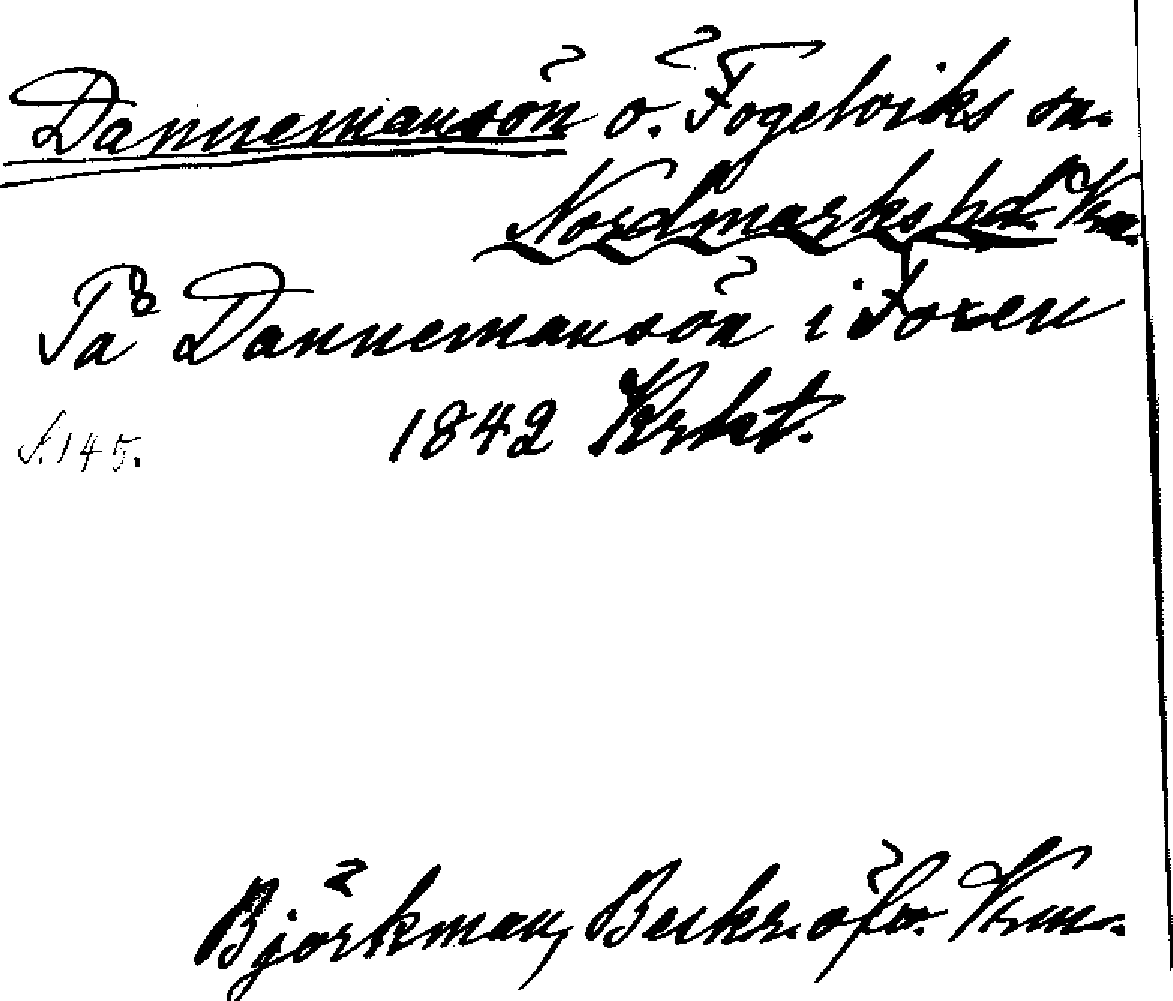 Dannemansön ö. Fogelviks sn.
Nordmarks hd. Vrm.
På Dannemansön i Foxen
1842 Krkt.
S. 145.
Björkman, Beskr. öfv. Vrm.